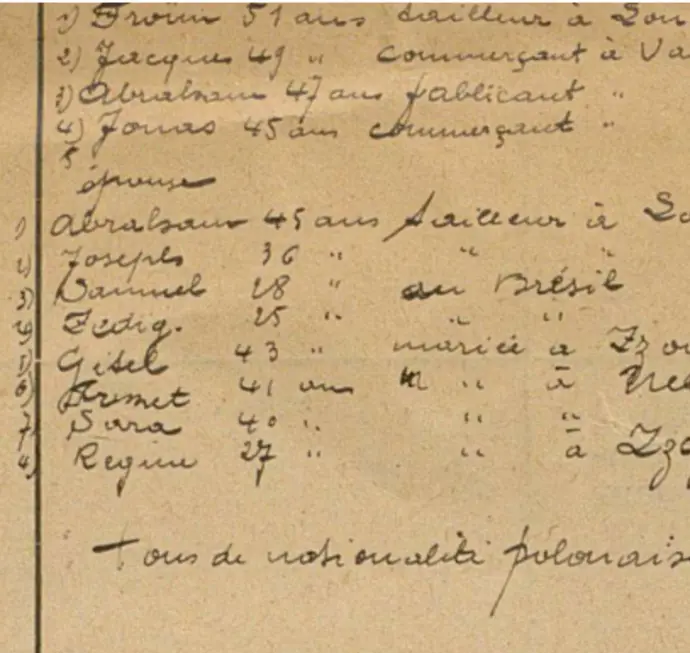 1) Froïm 51 ans tailleur à Lon
2) Jacques 49 " commerçant à Va
3) Abraham 47 ans fablicant "
4) Jonas 45 ans commerçant "
5
épouse
1) Abraham 45 ans tailleur à Lo
2) Joseph 36 " " "
3) Samuel 28 " au Brésil
4) Zedig. 25 " " "
5) Gisel 43 " mariée à Izo
6) 41 ans " à
7) Sara 40 " " "
8) Regine 27 " " à Izg
Tous de nationalité polonaise